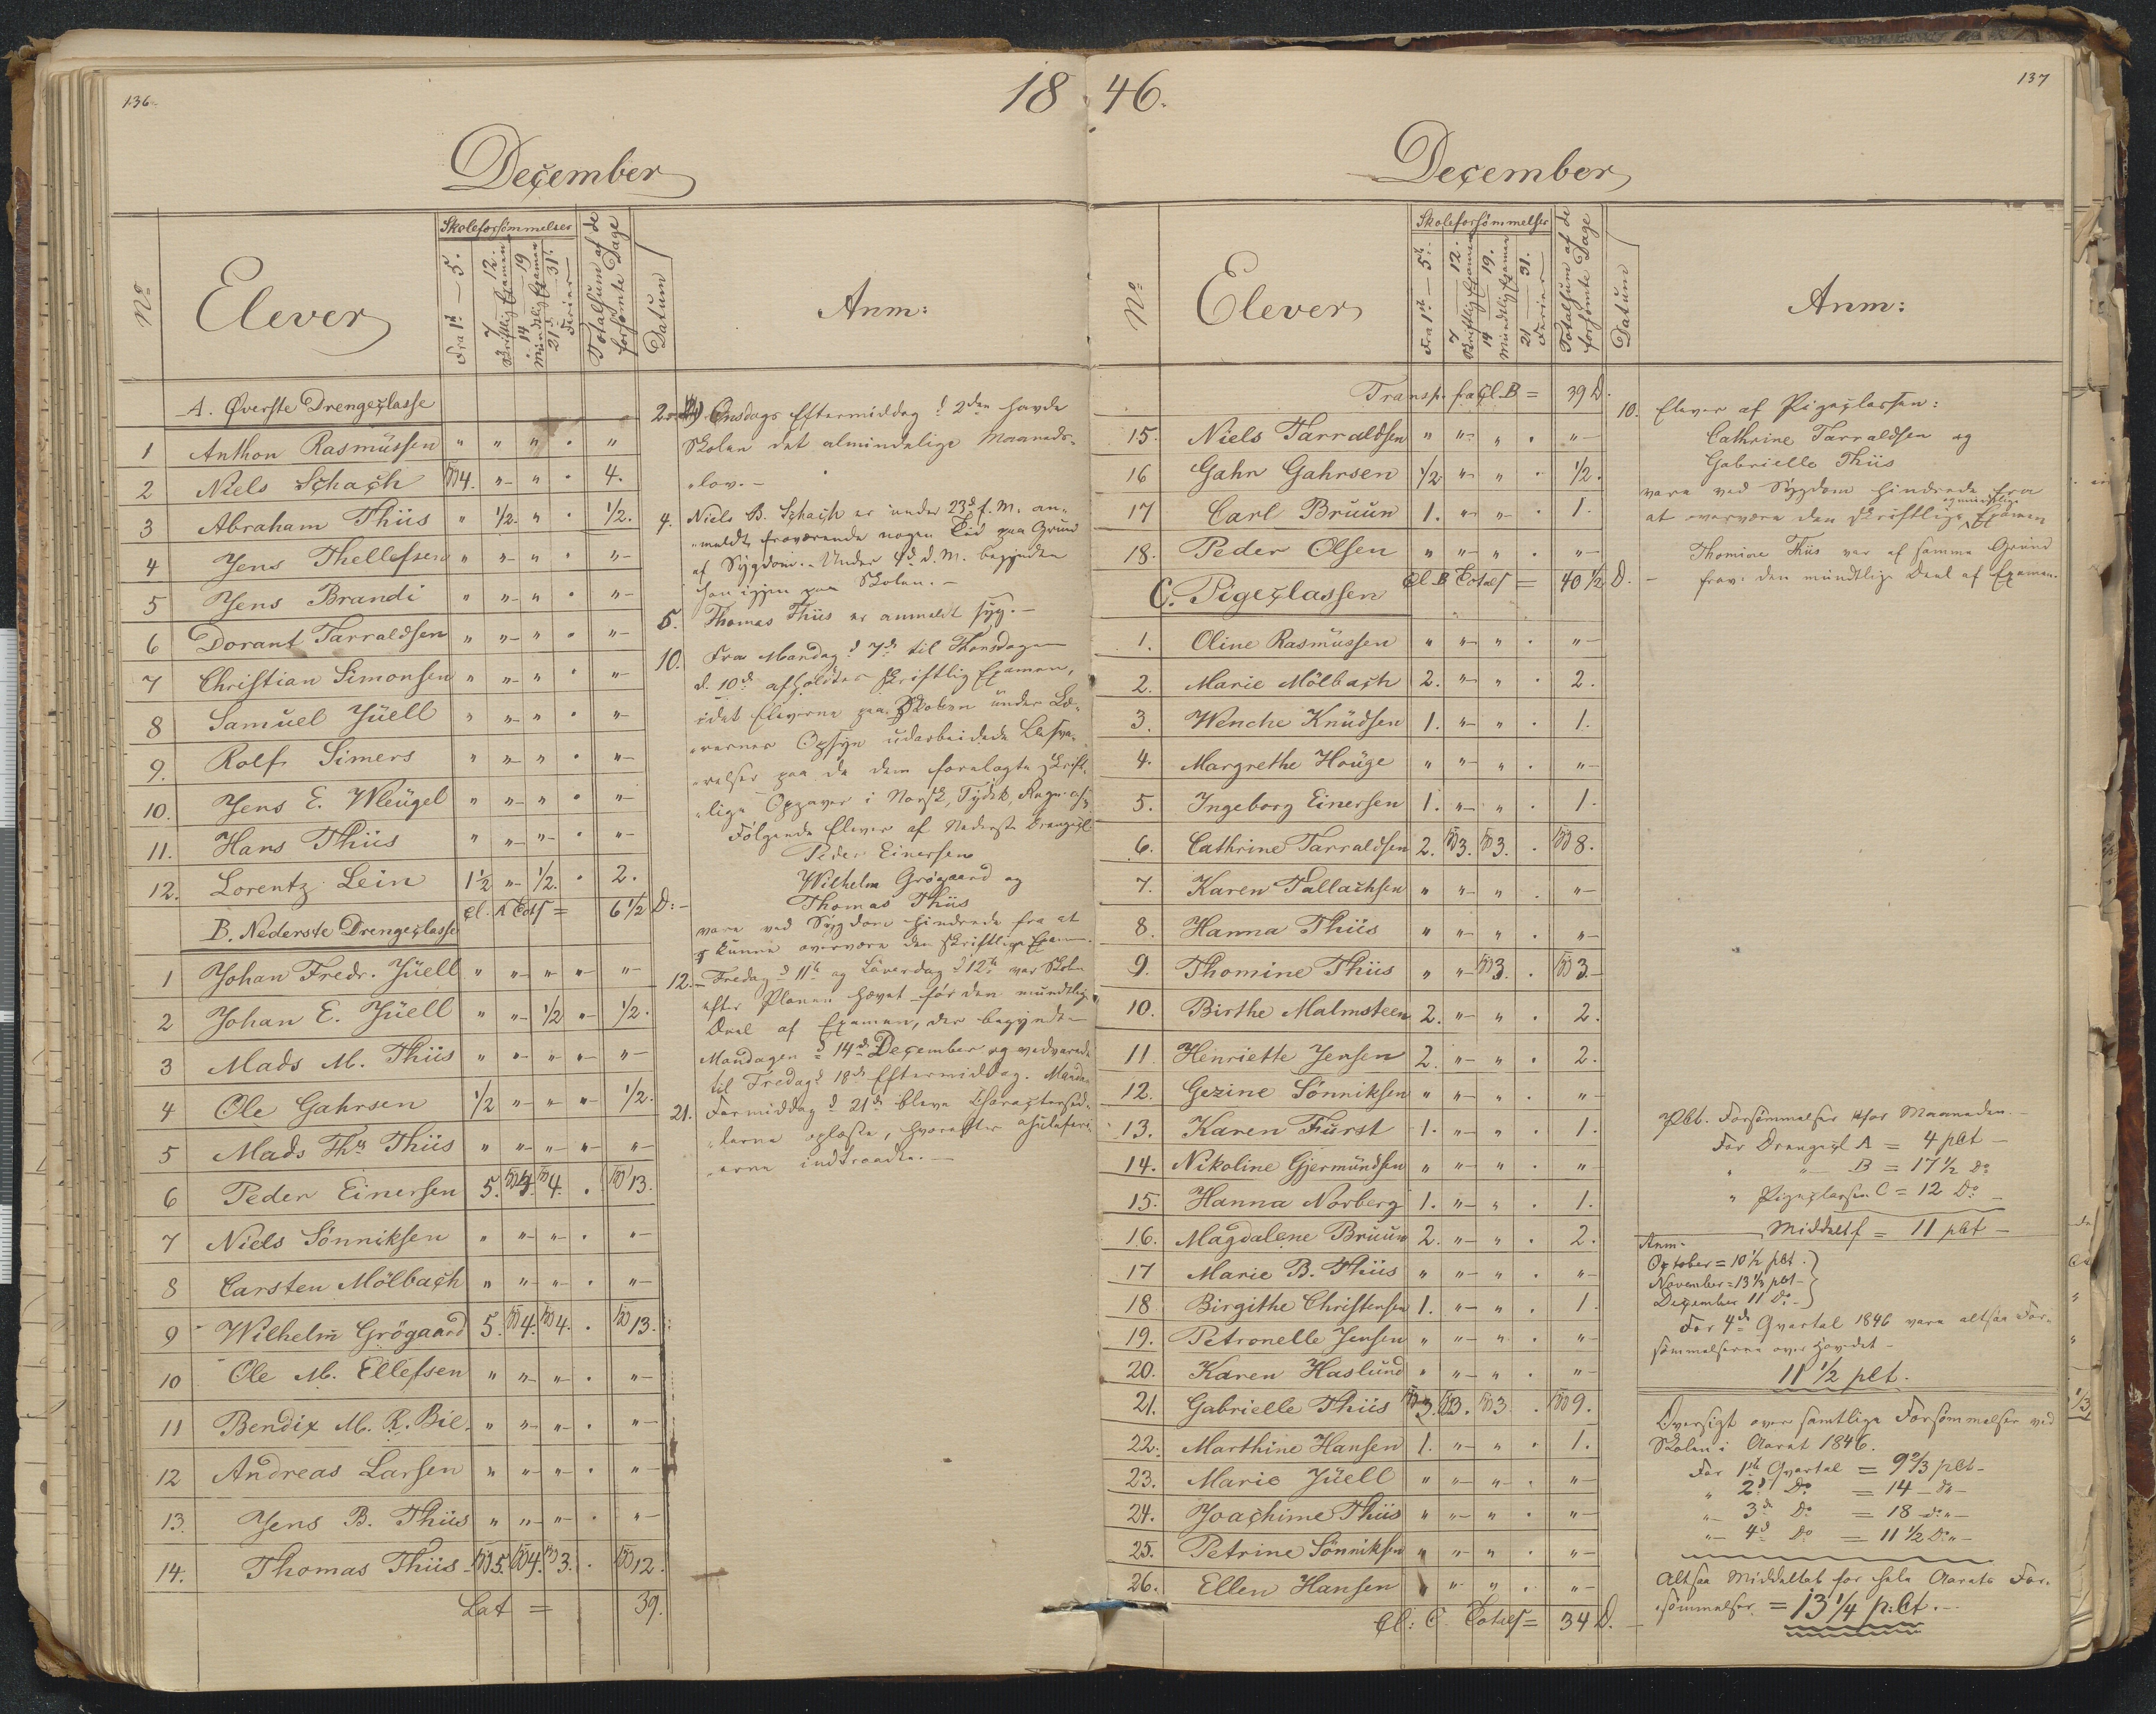 136
18 46.
137
December
No
Elever
Skoleforsömmelser
Fra 1ste – 5.
7 – 12. Skriftlig Examen
14 – 19 Mundtlig Examen
21d – 31te. Ferier
Totalsum af de forsömte Dage
Datum
Anm:
A. Øverste Drengeclasse
1 Anthon Rasmüssen " " " . "
2 Niels Schach 4. " " . 4.
3 Abraham Thiis " 1/2. " . 1/2.
4 Jens Thellefsen " " " . "
5 Jens Brandi " " " . "
6 Dorant Tarraldsen " " " . "
7 Christian Simonsen " " " . "
8 Samuel Jüell " " " . "
9. Rolf Simers " " " . "
10. Jens E. Wleügel " " " . "
11. Hans Thiis " " " . "
12. Lorentz Lein 1 1/2 " 1/2. . 2.
Cl. A Tots = 6 1/2 D:
B. Nederste Drengeclasse
1 Johan Fredr. Jüell " " " " "
2 Johan E. Jüell " " 1/2 " 1/2.
3 Mads M. Thiis " " " " "
4 Ole Gahrsen 1/2 " " " 1/2.
5 Mads Ths Thiis " " " " "
6 Peder Einersen 5. 4. 4. . 13.
7 Niels Sönniksen " " " . "
8 Carsten Mölbach " " " . "
9 Wilhelm Grögaard 5. 4. 4. . 13.
10 Ole M. Ellefsen " " " . "
11 Bendix M. R. Bie. " " " . "
12 Andreas Larsen " " " . "
13. Jens B. Thiis " " " . "
14. Thomas Thiis 5. 4. 3. . 12.
Lat = 39.
Onsdags Eftermiddag d 2den havde
Skolen det almindelige Maaneds-
"lov. –
4. Niels B. Schach er under 23d f. M. an-
"meldt fraværende nogen Tid paa Grund
af Sygdom. – Under 4d d. M. begyndte
han igjen paa Skolen. –
5. Thomas Thiis er anmeldt syg. –
10. Fra Mandag d 7de til Thorsdagen
d. 10de afholdtes skriftlig Examen,
idet Eleverne paa Skolen under Læ-
"rernes Opsyn udarbeidede Besva-
"relser paa de dem forelagte skrift-
"lige Opgaver i Norsk, Tydsk, Regn.
Følgende Elever af Nederste Drengecl.
Peder Einersen
Wilhelm Grögaard og
Thomas Thiis
vare ved Sygdom hindrede fra at
kunne overvære den skriftlige Exam.
12. – Fredag d 11te og Löverdag d 12te var Skolen
efter Planen hævet for den mundtlige
Deel af Examen, der begyndte
Mandagen d 14de December og vedvarede
til Fredag d 18de Eftermiddag. Mandag
21. Formiddag d 21de bleve Charactersed-
"lerne oplæste, hvorefter Juleferi-
"erne indtraadte. –
December
No
Elever
Skoleforsömmelser
Fra 1ste – 5te.
7 – 12. Skriftlig Examen
14 – 19. Mündtlig Examen
21 – 31. Ferier
Totalsum af de forsömte Dage
Datum
Anm:
Transp. fra Cl. B = 39 D.
15. Niels Tarraldsen " " " . "
16 Gahr Gahrsen 1/2 " " . 1/2.
17 Carl Bruun 1. " " . 1.
18. Peder Olsen " " " . "
Cl. B Totals = 40 1/2 D.
C. Pigeclassen
1. Oline Rasmüssen " " " . "
2. Marie Mölbach 2. " " . 2.
3. Wenche Knüdsen 1. " " . 1.
4. Margrethe Houge " " " . "
5. Ingeborg Einersen 1. " " . 1.
6. Cathrine Tarraldsen 2. 3. 3. . 8.
7. Karen Tallachsen " " " . "
8. Hanna Thiis " " " . "
9. Thomine Thiis " " 3. . 3.
10. Birthe Malmsteen 2. " " . 2.
11. Henriette Jensen 2. " " . 2.
12. Gezine Sönniksen " " " . "
13. Karen Fürst 1. " " . 1.
14. Nikoline Gjermündsen " " " . "
15. Hanna Norberg 1. " " . 1.
16. Magdalene Brüün 2. " " . 2.
17 Marie B. Thiis " " " . "
18 Birgithe Christensen 1. " " . 1.
19. Petronelle Jensen " " " . "
20. Karen Haslund " " " . "
21. Gabrielle Thiis 3. 3. 3 . 9.
22. Marthine Hansen 1. " " . 1.
23. Marie Jüell " " " . "
24. Joachime Thiis " " " . "
25. Petrine Sönniksen " " " . "
26. Ellen Hansen " " " . "
Cl: C. Totals = 34 D.
10. Elever af Pigeclassen:
Cathrine Tarraldsen og
Gabrielle Thiis
vare ved Sygdom hindrede fra
at overvære den skriftlige og mundtlige Examen
– Thomine Thiis var af samme Grund
frav. den mündtlige Deel af Examen.
Plt. Forsömmelser for Maaneden. –
For Drengecl A = 4 plt –
" " B = 17 1/2 Do
" Pigeclassen C = 12 Do
Middelt. = 11 plt –
Anm.
October = 10 1/2 plt.
November = 13 1/3 plt –
December 11 Do –
For 4de Qvartal 1846 vare altsaa For-
sömmelserne over Hovedet –
11 1/2 plt.
Oversigt over samtlige Forsömmelser ved
Skolen i Aaret 1846.
For 1ste Qvartal = 9 2/3 plt –
" 2d Do = 14 – do –
" 3de Do = 18 – do –
" 4d Do = 11 1/2 Do –
Altsaa Middeltal for hele Aarets For-
sömmelser = 13 1/4 p:Ct. –